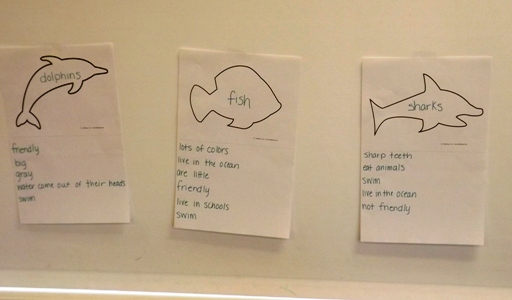 dolphins
friendly
big
gray
water come out of their heads
swim
fish
lots of colors
live in the ocean
are little
friendly
live in schools
swim
sharks
sharp teeth
eat animals
swim
live in the ocean
not friendly